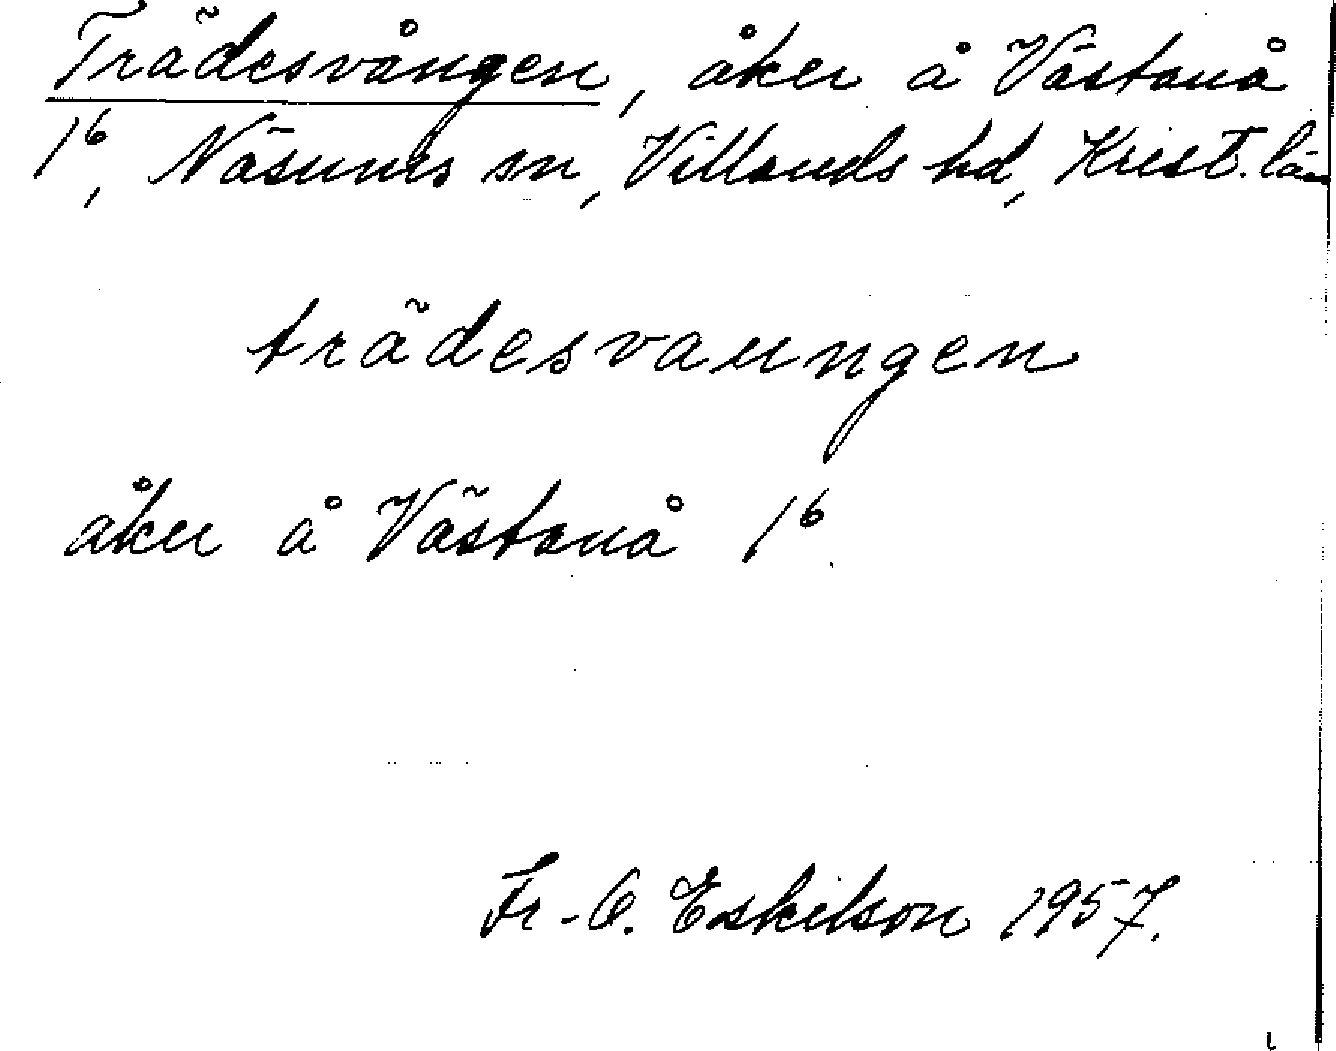 Trädesvången, åker å Västanå
1⁶, Näsums sn, Villands hd, Krist. län
trädesvaungen
åker å Västanå 1⁶.
Fr-O. Eskilson 1957.